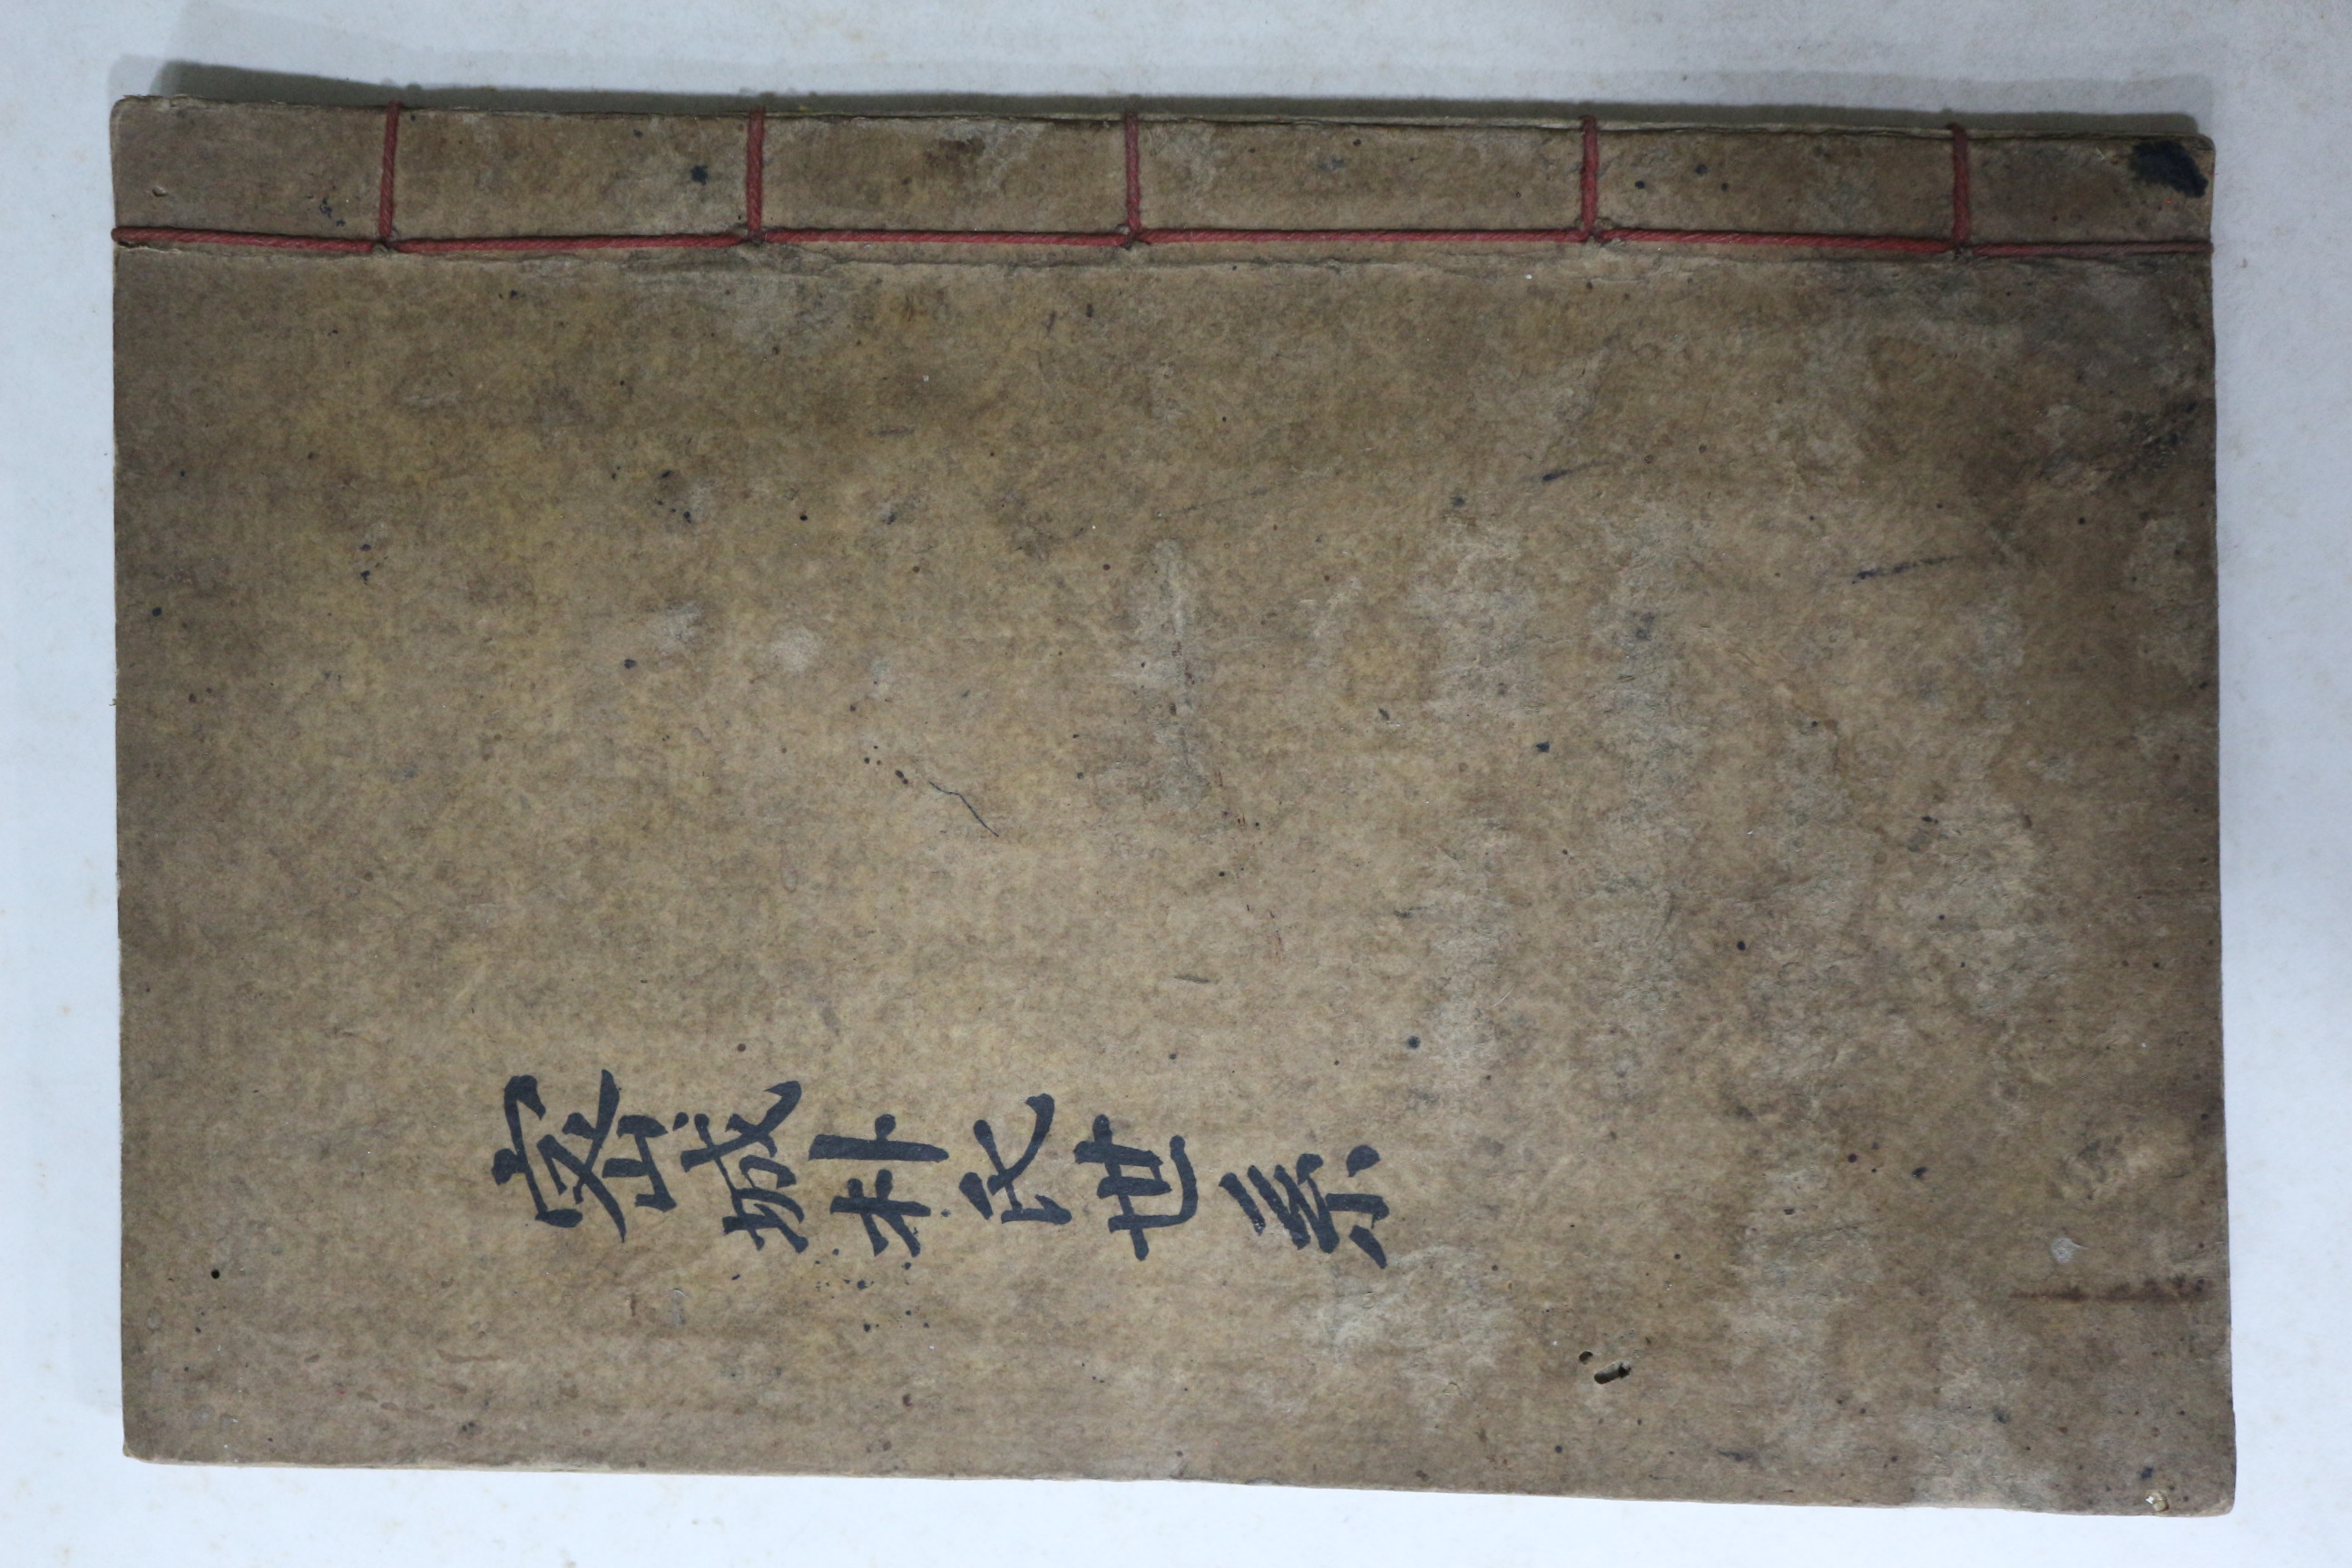 密城朴氏世系